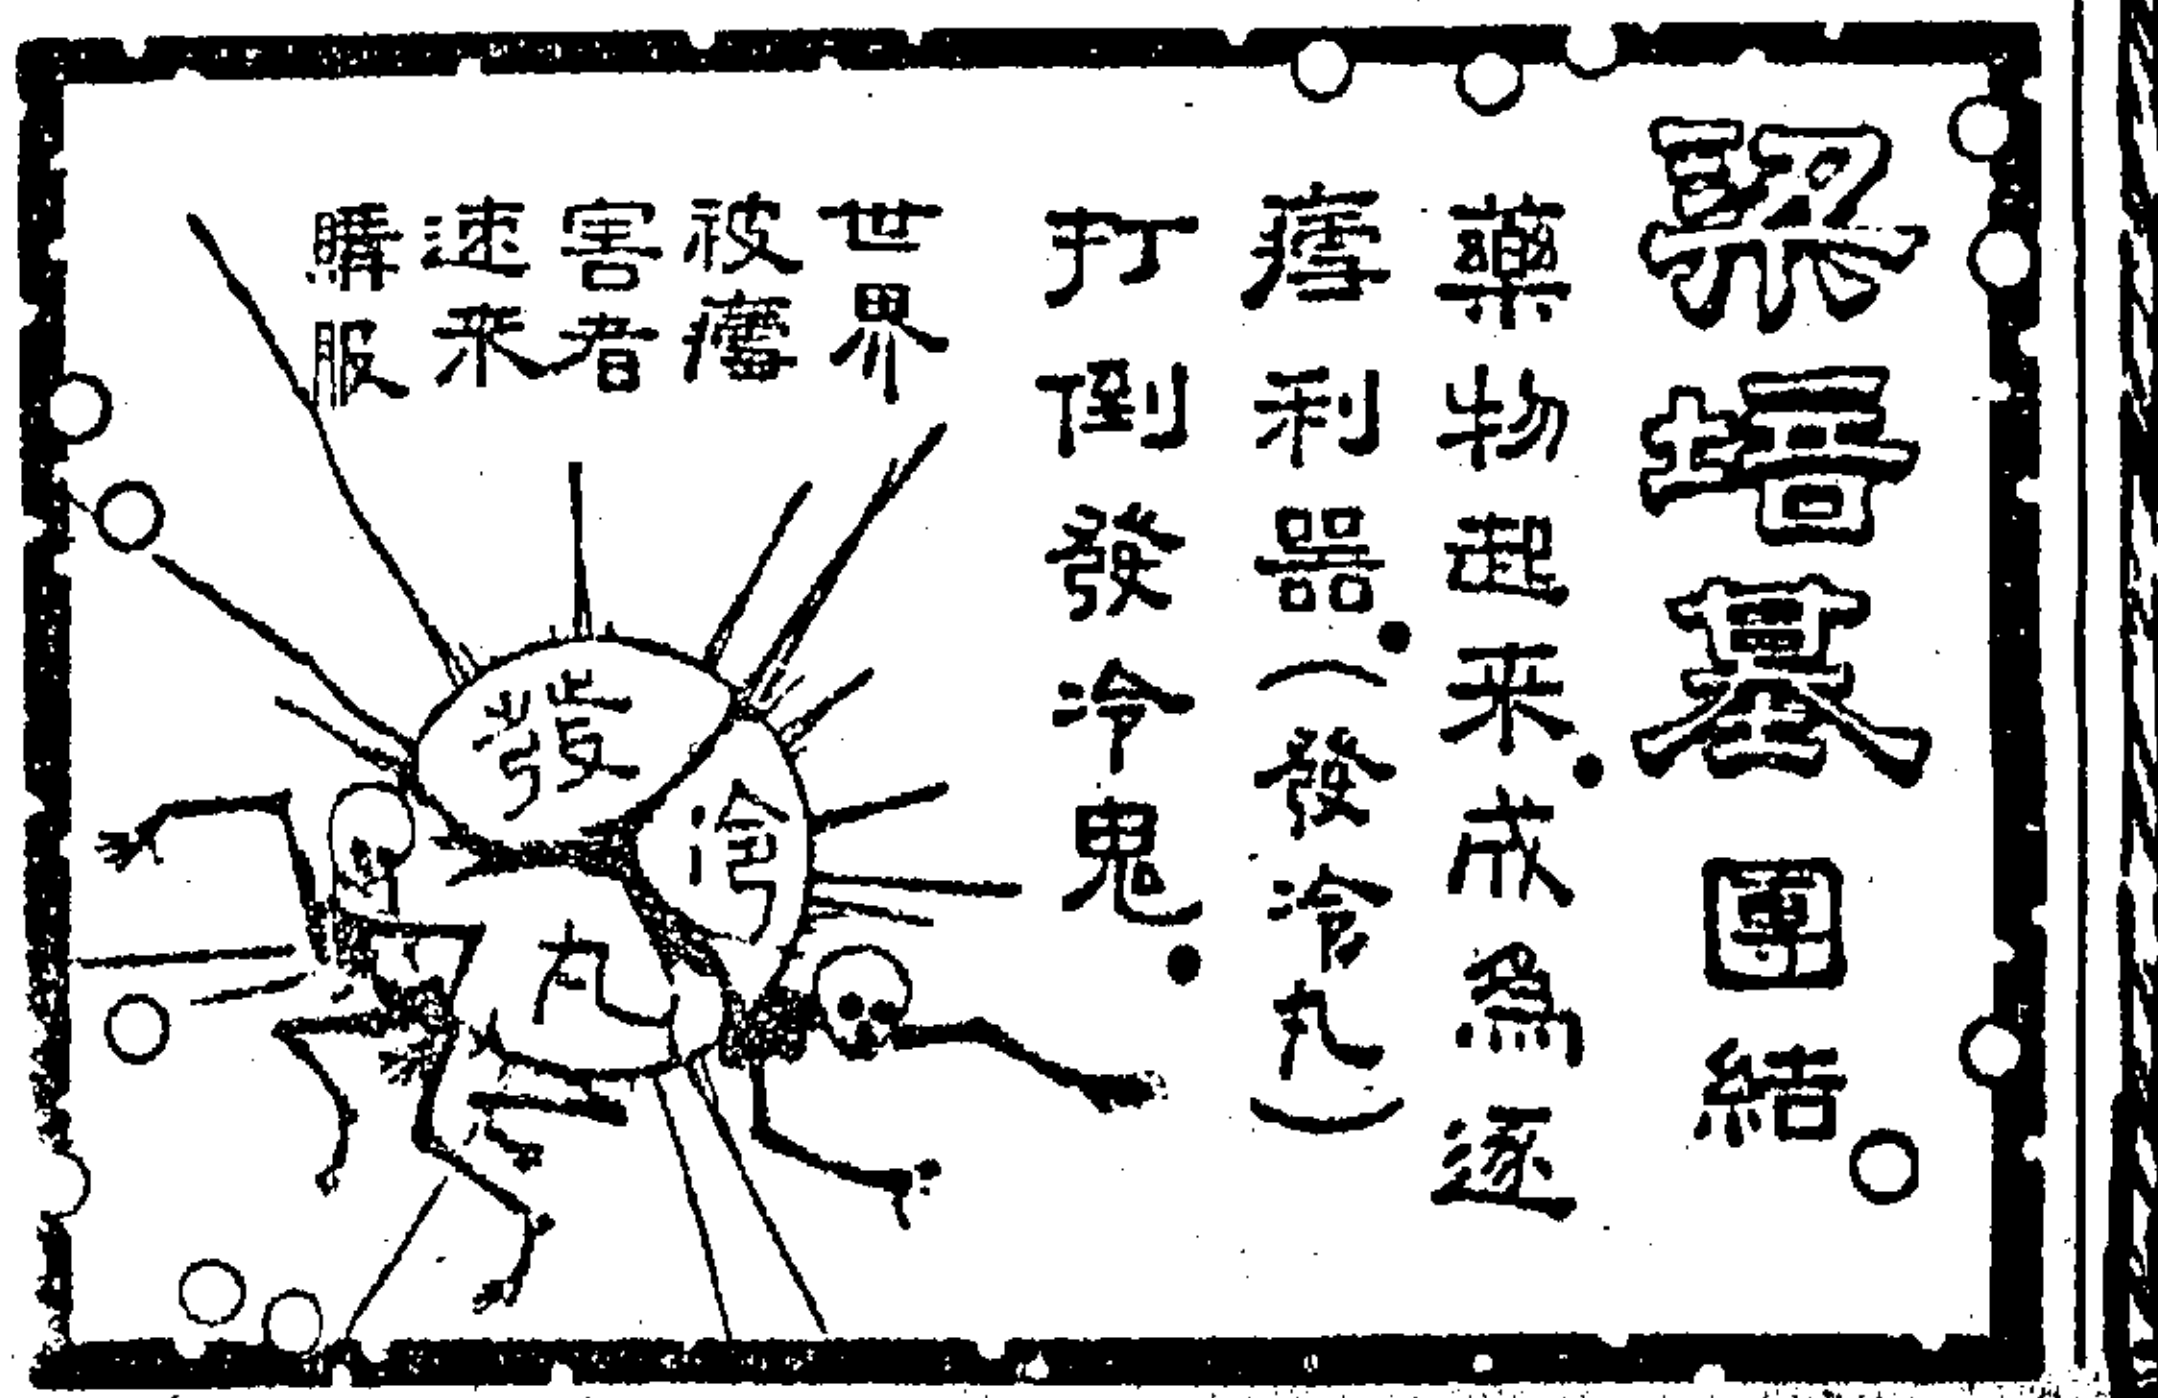 梁培基團結
藥物起来●成為逐
瘧利器●(發冷丸)
打倒發冷鬼●
世界
被瘧
害者
速来
購服
發
冷
丸